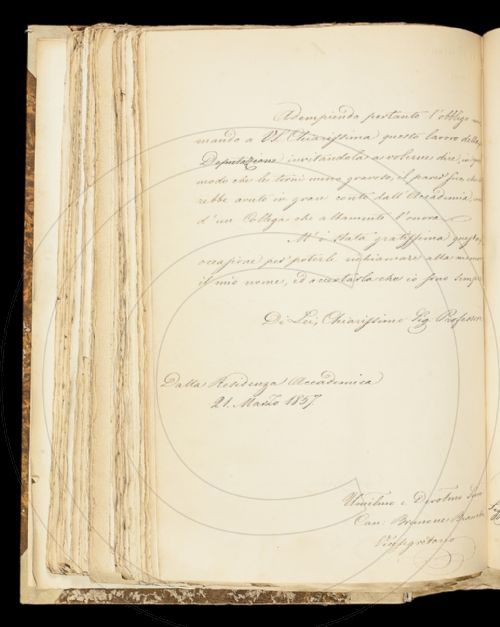 Adempiendo pertanto l'obbligo
mando a VS. Chiarissima questo lavoro della
Deputazione invitandola a volerne dire, in
modo che le torni meno gravoso, il parer suo che
rebbe avuto in gran conto dall'Accademia,
d'un Collega che altamente l'onora.
M'è stata gratissima questa
occasione per poterle richiamare alla
il mio nome, ed accertarla che io sono sempre
Di Lei, Chiarissimo Sig. Professore
Dalla Residenza Accademica
21. Marzo 1857.
Umilmo e Devotmo
Can: Brunone Bianchi
Segretario